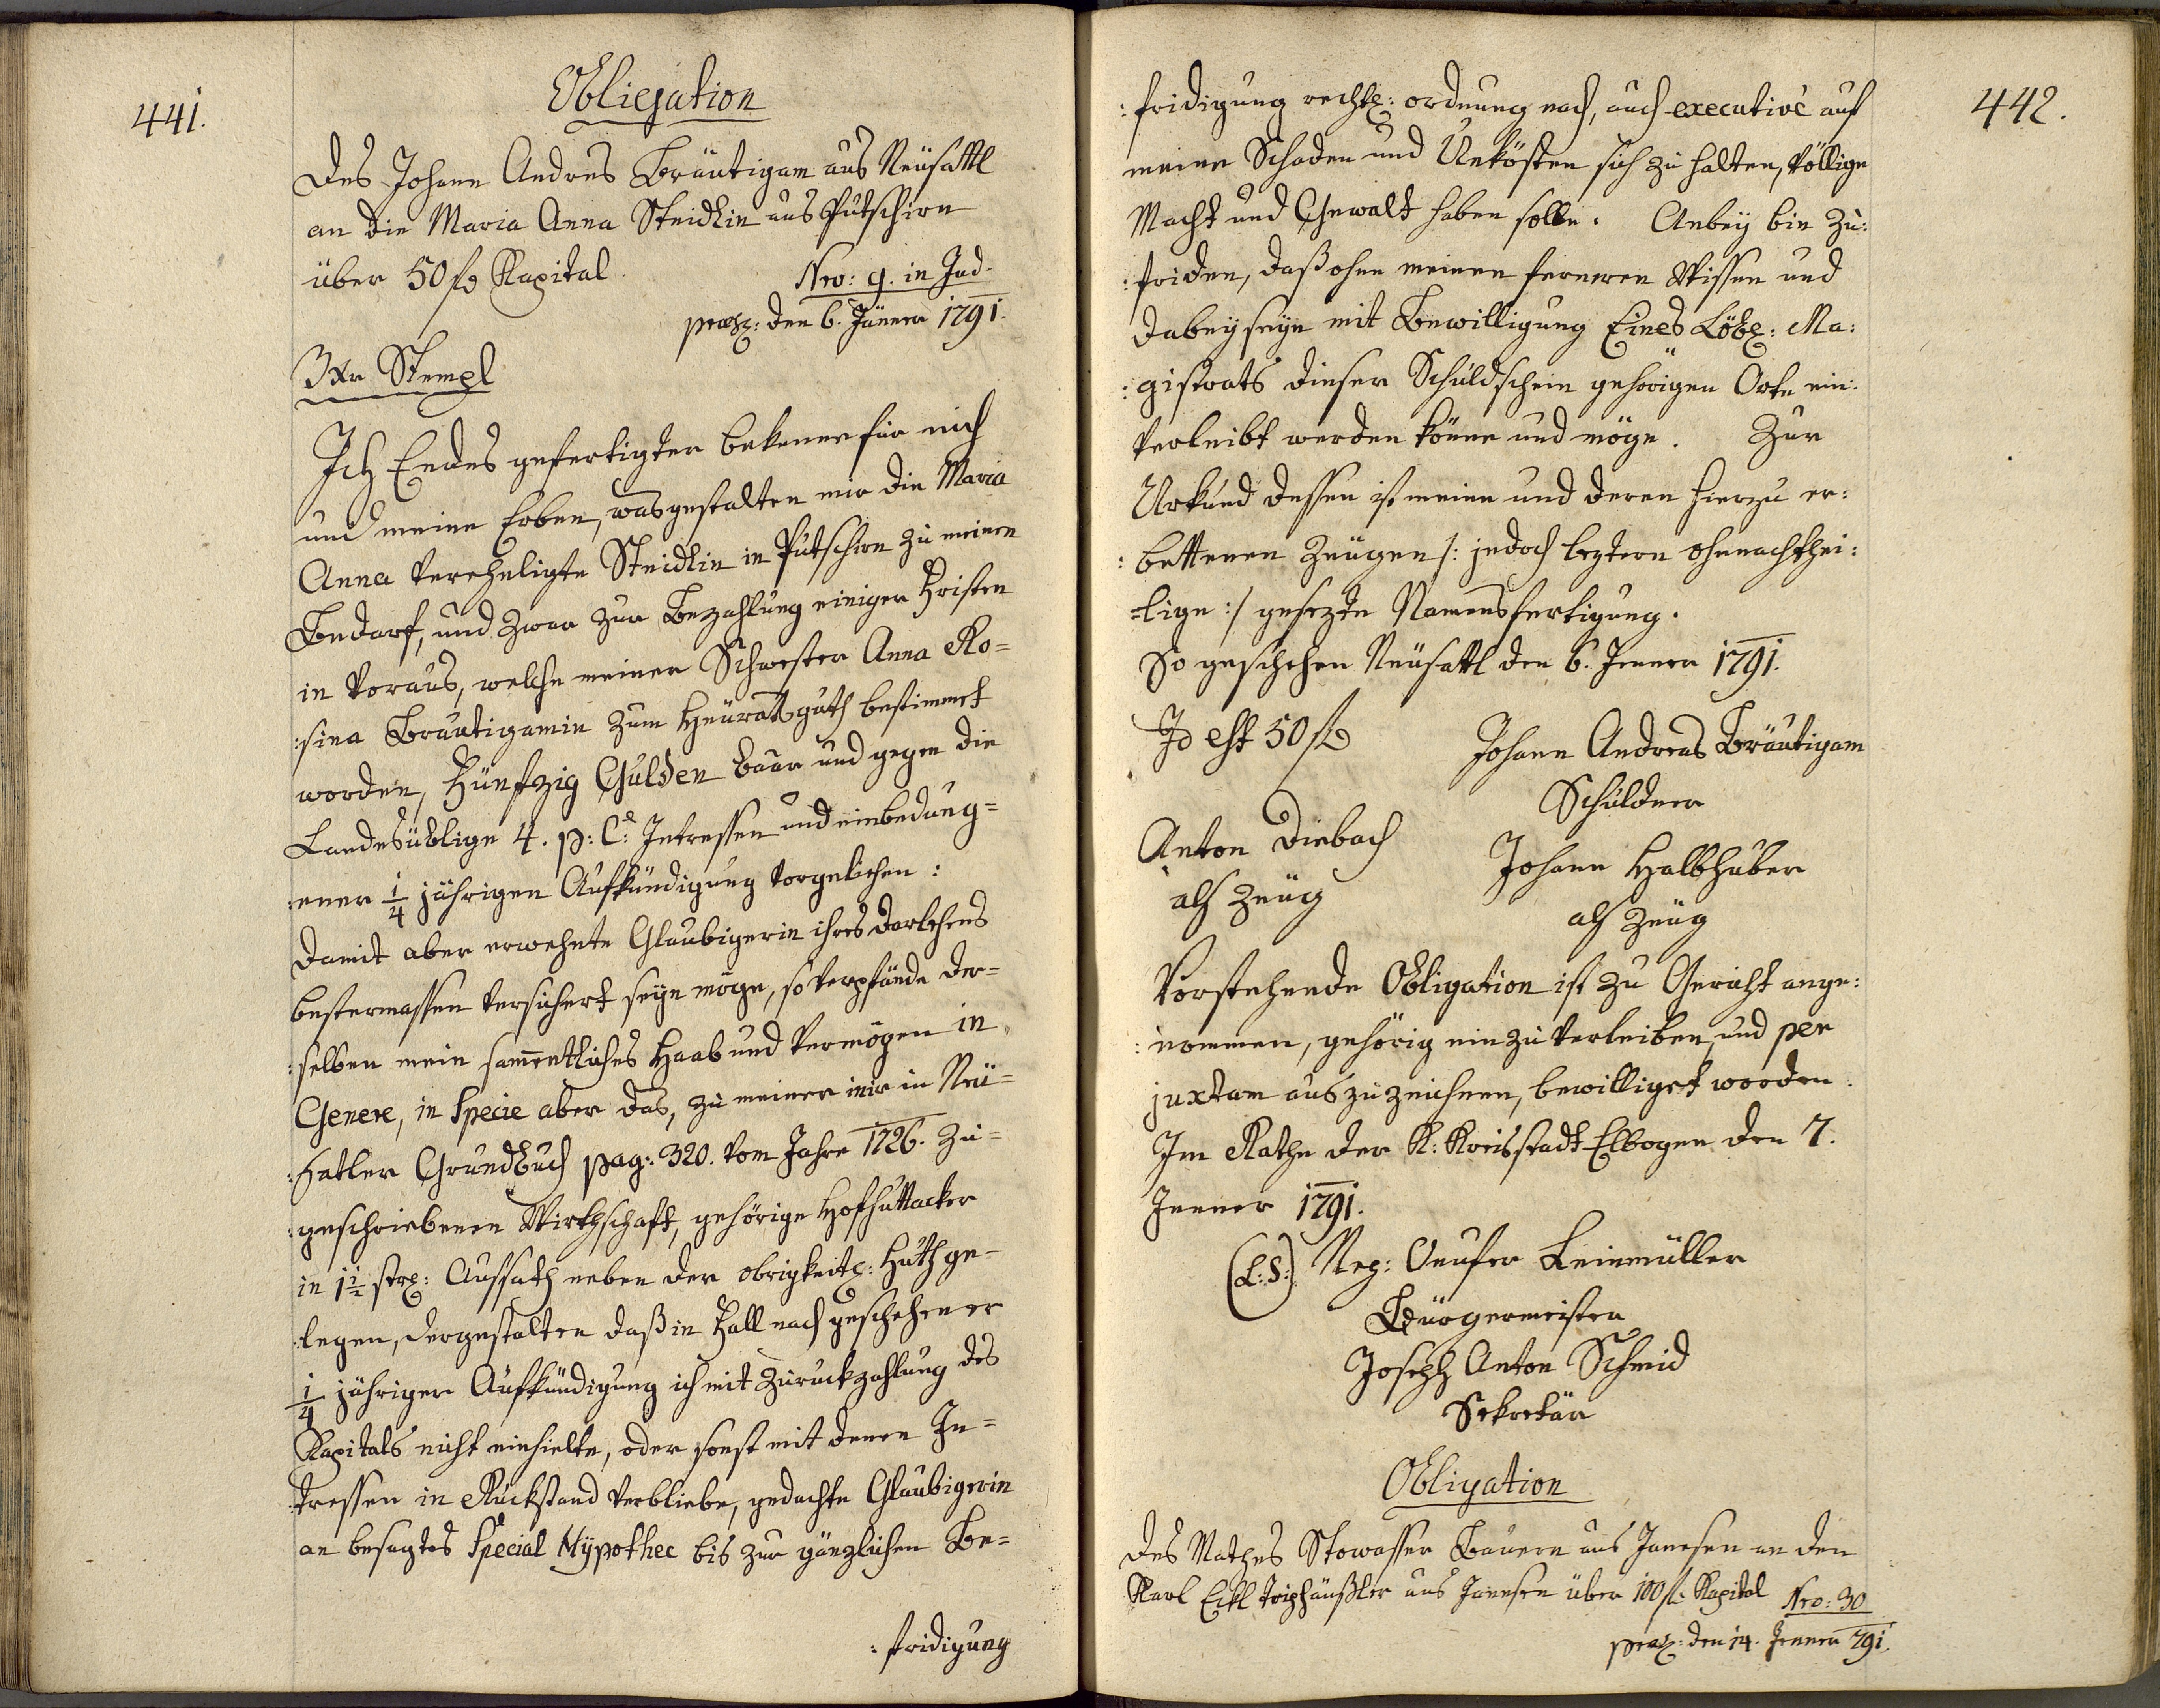 441.
Obligation
des Johann Andres Bräutigam aus Neusattl
an die Maria Anna Steidlin aus Putschirn
über 50 fl Kapital.
Nro: 9. in Jud.
praes: den 6. Jänner 1791.
3 Xr Stempl
Ich Endes gefertigter bekenne für mich
und meine Erben, was gestalten mir die Maria
Anna vereheligte Steidlin in Putschirn zu meinen
Bedarf, und zwar zur Bezahlung einiger Fristen
in Voraus, welche meiner Schwester Anna Ro=
:sina Bräutigamin zum Heuratsguth bestimmet
worden, Fünfzig Gulden baar und gegen die
Landesüblige 4. p: C: Intressen und einbedung=
:ener 1/4 jährigen Aufkündigung vorgelichen:
Damit aber erwehnte Glaubigerin ihres Darlehens
bestermassen versichert seyn möge, so verpfände der=
:selben mein sammentliches Haab und Vermögen in
Genere, in Specie aber das, zu meiner mir in Neu=
:satler Grundbuch pag: 320. vom Jahre 1726. zu=
:geschriebenen Wirthschaft, gehörige Hofhuttacker
in 1 1/2 str: Aussath neben der obrigkeitl: Huth ge=
:legen, dergestalten daß in Fall nach geschehener
1/4 jähriger Aufkündigung ich mit Zuruckzahlung des
Kapitals nicht einhielte, oder sonst mit denen In=
:tressen in Ruckstand verbliebe, gedachte Glaubigerin
an besagtes Special Hypothec bis zur gänzlichen Be=
:fridigung
442.
:fridigung rechtl: ordnung nach, auch executivè auf
meine Schaden und Unkösten sich zu halten, völlige
Macht und Gewalt haben solle. Anbey bin zu:
:friden, daß ohne meinen ferneren Wissen und
dabeyseyn mit Bewilligung Eines Löbl: Ma:
:gistrats dieser Schuldschein gehörigen Orte ein:
verleibt werden könne und möge. Zur
Urkund dessen ist meine und deren hierzu er:
:bettenen Zeugen /: jedoch leztern ohnnachthei:
=lige :/ gesezte Namensfertigung.
So geschehen Neusattl den 6. Jenner 1791.
Id est 50 fl
Johann Andreas Bräutigam
Schuldner
Anton Diebach
als Zeug
Johann Halbhuber
als Zeug
Vorstehende Obligation ist zu Gericht ange:
:nommen, gehörig einzuverleiben, und per
juxtam auszuzeichnen, bewilliget worden.
Im Rathe der K: Kreisstadt Elbogen den 7.
Jenner 1791.
(L:S:) Neg: Leinmüller
Bürgermeister
Joseph Anton Schmid
Sekretär
Obligation
des Mathes Stowasser Bauern aus Janesen an den
Karl Eckl aus Janesen über 100 fl. Kapital
Nro: 30
praes: den 14. Jenner 791.